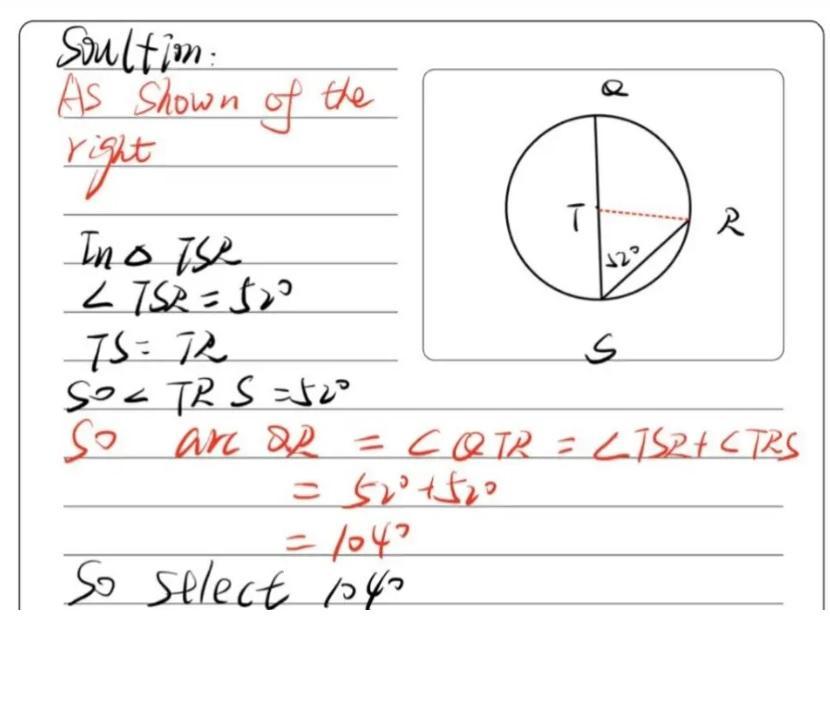 Soultim:
As shown of the
right
Q
T
R
52°
S
In △ TSR
∠ TSR = 52°
TS = TR
So ∠ TRS = 52°
So arc QR = ∠QTR = ∠TSR + ∠TRS
= 52° + 52°
= 104°
So select 104°